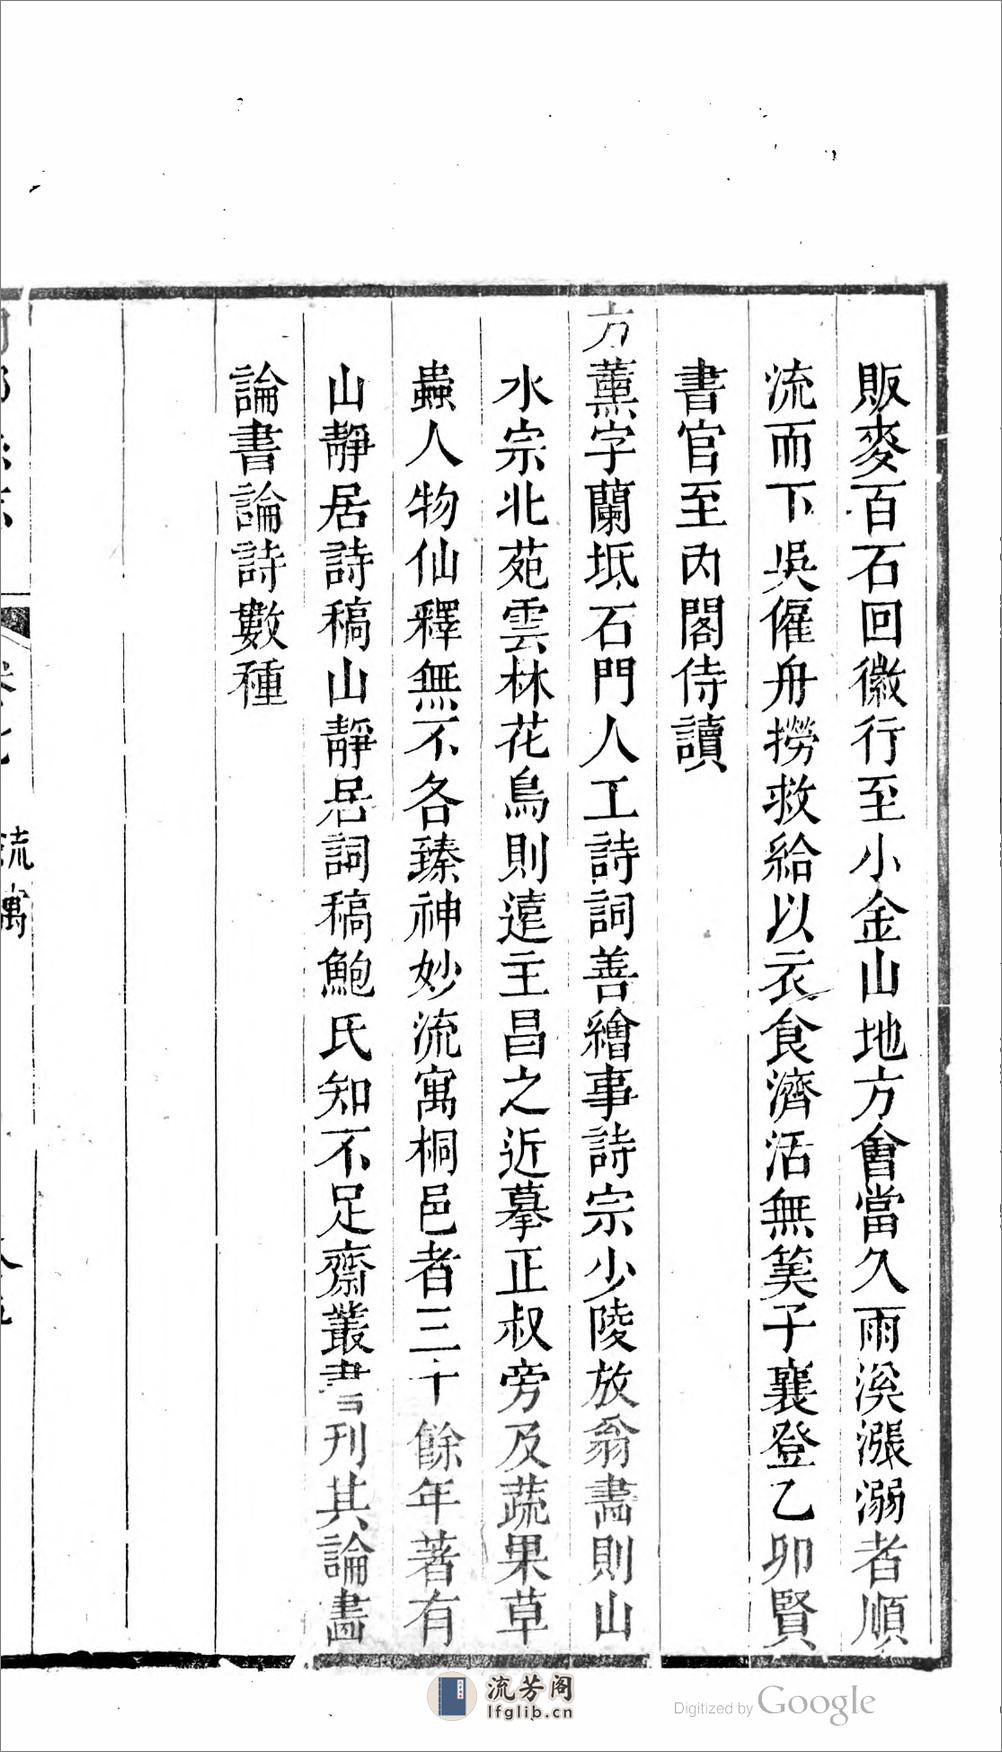 販麥百石回徽行至小金山地方會當久雨溪漲溺者順
流而下吳僱舟撈救給以衣食濟活無筭子襄登乙卯賢
書官至內閣侍讀
方薰字蘭坻石門人工詩詞善繪事詩宗少陵放翁畫則山
水宗北苑雲林花鳥則遠主昌之近摹正叔旁及蔬果草
蟲人物仙釋無不各臻神妙流寓桐邑者三十餘年著有
山靜居詩稿山靜居詞稿鮑氏知不足齋叢書刊其論畫
論書論詩數種
流寓
流芳阁
lfglib.cn
Digitized by Google